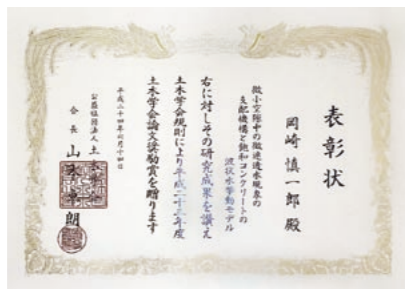 表彰状
岡崎慎一郎 殿
微小空隙中の微速透水現象の
支配機構と飽和コンクリートの
液状水挙動モデル
右に対しその研究成果を讃え
土木学会規則により平成二十三年度
土木学会論文奨励賞を贈ります
平成二十四年六月十四日
公益社団法人 土木
会長 山 朗